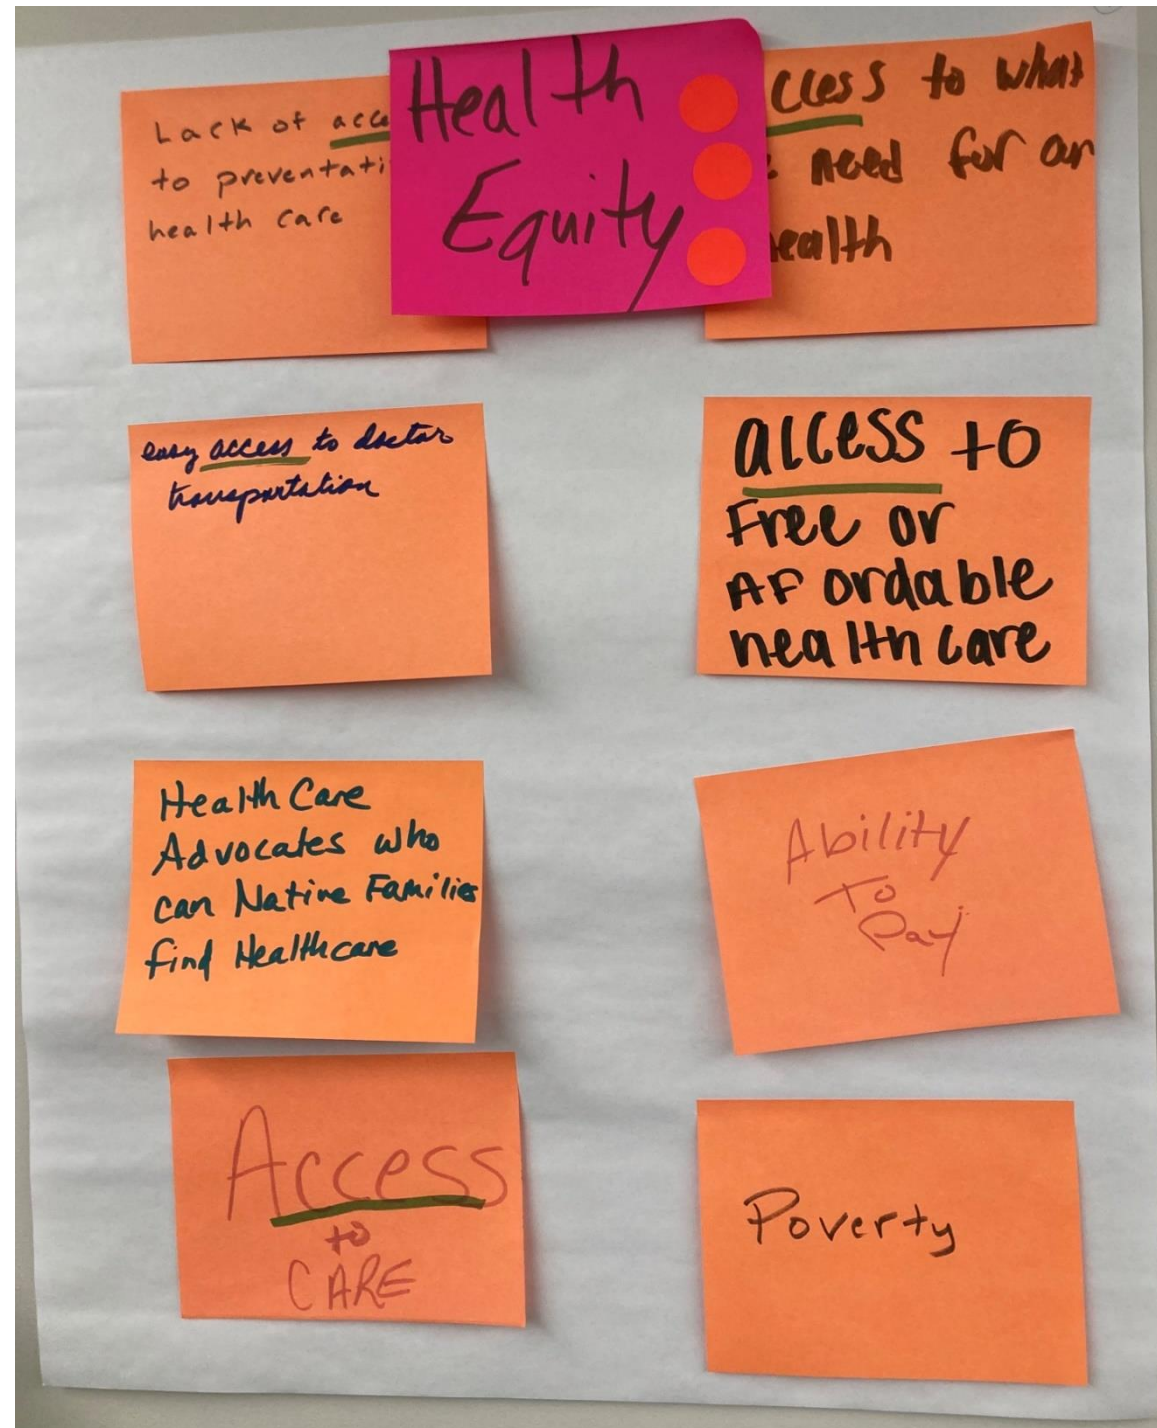 Health
Equity
Lack of acce
to preventati
health care
ccess to what
need for our
ealth
easy access to doctor
transportation
access to
Free or
AFordable
health care
Health Care
Advocates who
can Native Families
find Healthcare
Ability
To
Pay
Access
to
CARE
Poverty